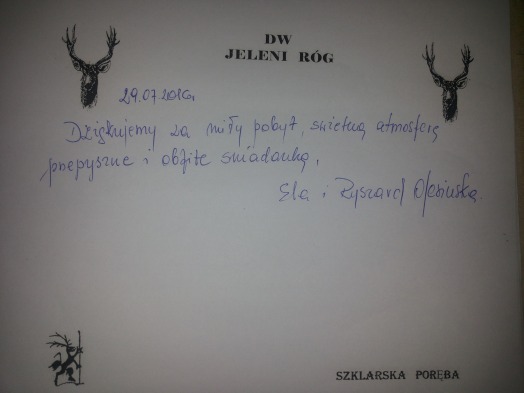 DW
JELENI RÓG
29.07.2016r
Dziękujemy za miły pobyt, świetną atmosferę
przepyszne i obfite śniadanka,
Ela i Ryszard
SZKLARSKA PORĘBA